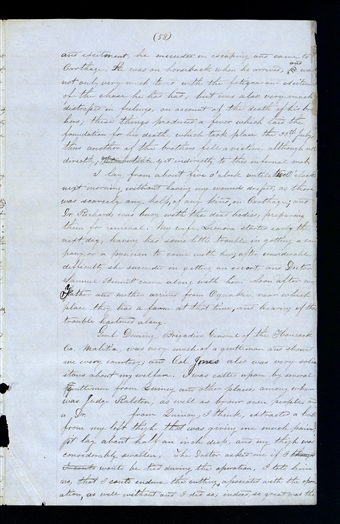 (58)
and excitement, he succeeded in escaping and came to
Carthage. He was on horseback when he arrived, and was
not only very much tired with the fatigue and excitement
of the chase he had had, but was also very much
distress'd in feelings, on account of the death of his bro-
thers; these things produced a fever which laid the
foundation for his death, which took place the 30th July,
thus another of the brothers fell a victim, although not
directly, yet indirectly to this infernal mob.
I lay from about five o'clock until two O'clock
next morning without having my wound dress'd, as there
was scarcely any help, of any kind, in Carthage, and
Dr Richards was busy with the dead bodies, preparing
them for removal. My wife Leonora started early the
next day, having had some little trouble in getting a com-
pany or a physician to come with her; after considerable
difficulty she succeeded in getting an escort and Doctor
Samuel Bennet came along with her. Soon after my
Father and mother arrived from Oquaka, near which
place they had a farm at that time, and hearing of the
trouble hastened along.
Genl. Deming, Brigadier General of the Hancock
Co. Malitia, was very much of a gentleman and shewed
me every courtesy; and Col. Jones also was very solici-
tous about my welfare. I was called upon by several
Gentlemen from Quincy and other places, among whom
was Judge Ralston, as well as by our own people, and
a Dr from Quincy, I think, extracted a ball
from my left thigh that was giving me much pain;
it lay about half an inch deep, and my thigh was
considerably swollen. The Doctor asked me if I
would be tied during the operation; I told him
no, that I could endure the cutting associated with the oper-
ation, as well without and I did so; indeed, so great was the